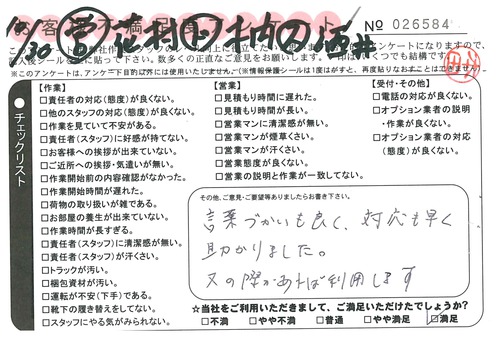 10/30 営 花村 木内 酒井
No 026584
※このアンケートは、アンケート目的以外には使用いたしません。(※情報保護シールは1度はがすと、再度貼りなおすことはできません)
チェックリスト
【作業】
□責任者の対応(態度)が良くない。
□他のスタッフの対応(態度)が良くない。
□作業を見ていて不安がある。
□責任者(スタッフ)に好感が持てない。
□お客様への挨拶が出来ていない。
□ご近所への挨拶・気遣いが無い。
□作業開始前の内容確認がなかった。
□作業開始時間が遅れた。
□荷物の取り扱いが雑である。
□お部屋の養生が出来ていない。
□作業時間が長すぎる。
□責任者(スタッフ)に清潔感が無い。
□責任者(スタッフ)が汗くさい。
□トラックが汚い。
□梱包資材が汚い。
□運転が不安(下手)である。
□靴下の履き替えをしてない。
□スタッフにやる気がみられない。
【営業】
□見積もり時間に遅れた。
□見積もり時間が長い。
□営業マンに清潔感が無い。
□営業マンが煙草くさい。
□営業マンが汗くさい。
□営業態度が良くない。
□営業の説明と作業が一致してない。
【受付・その他】
□電話の対応が良くない。
□オプション業者の説明
・作業が良くない。
□オプション業者の対応
(態度)が良くない。
その他、ご意見・ご要望等ありましたらお書き下さい。
言葉づかいも良く、対応も早く
助かりました。
又の際があれば利用します
☆当社をご利用いただきまして、ご満足いただけたでしょうか?
□不満 □やや不満 □普通 □やや満足 ☑満足